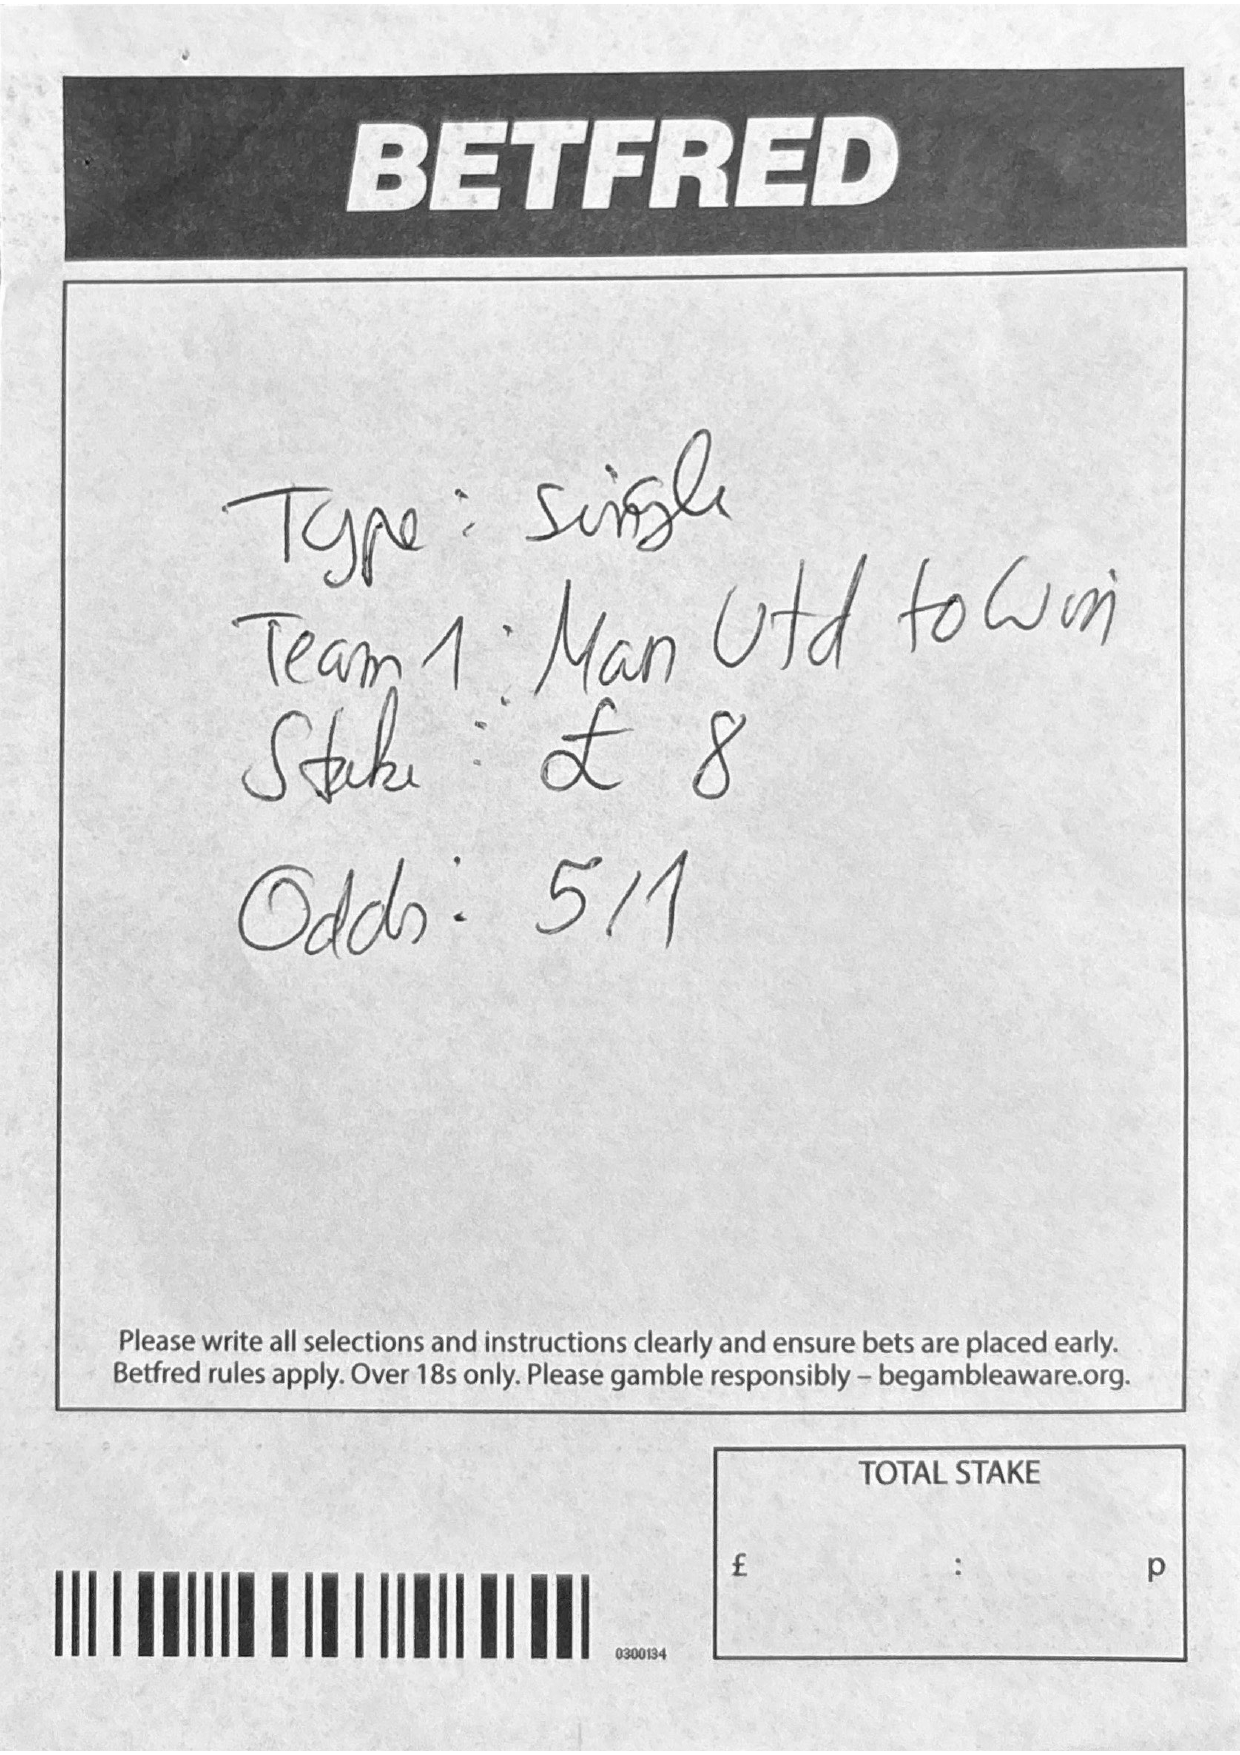 BETFRED
Type: single
Team 1: Man Utd to Win
Stake: £ 8
Odds: 5/1
Please write all selections and instructions clearly and ensure bets are placed early.
Betfred rules apply. Over 18s only. Please gamble responsibly – begambleaware.org.
TOTAL STAKE
£ : p
0300134